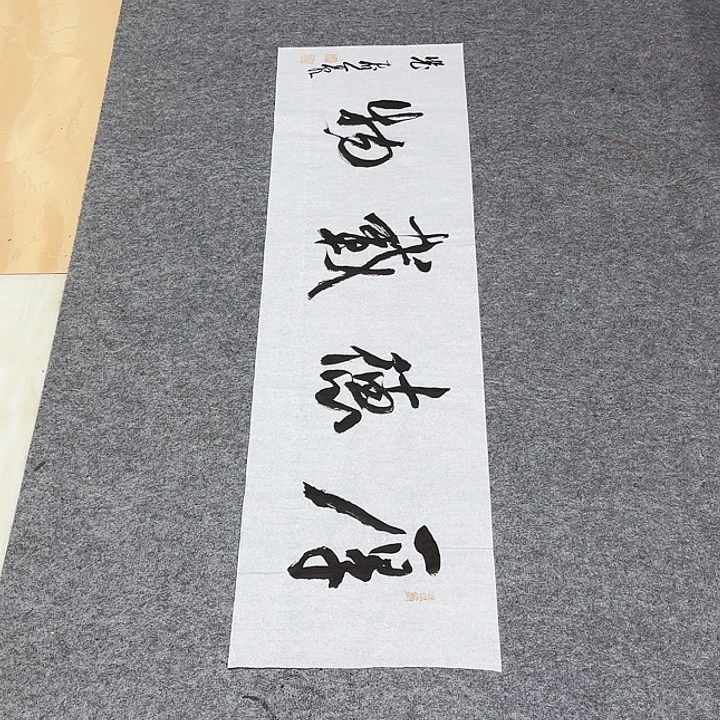 厚德载物